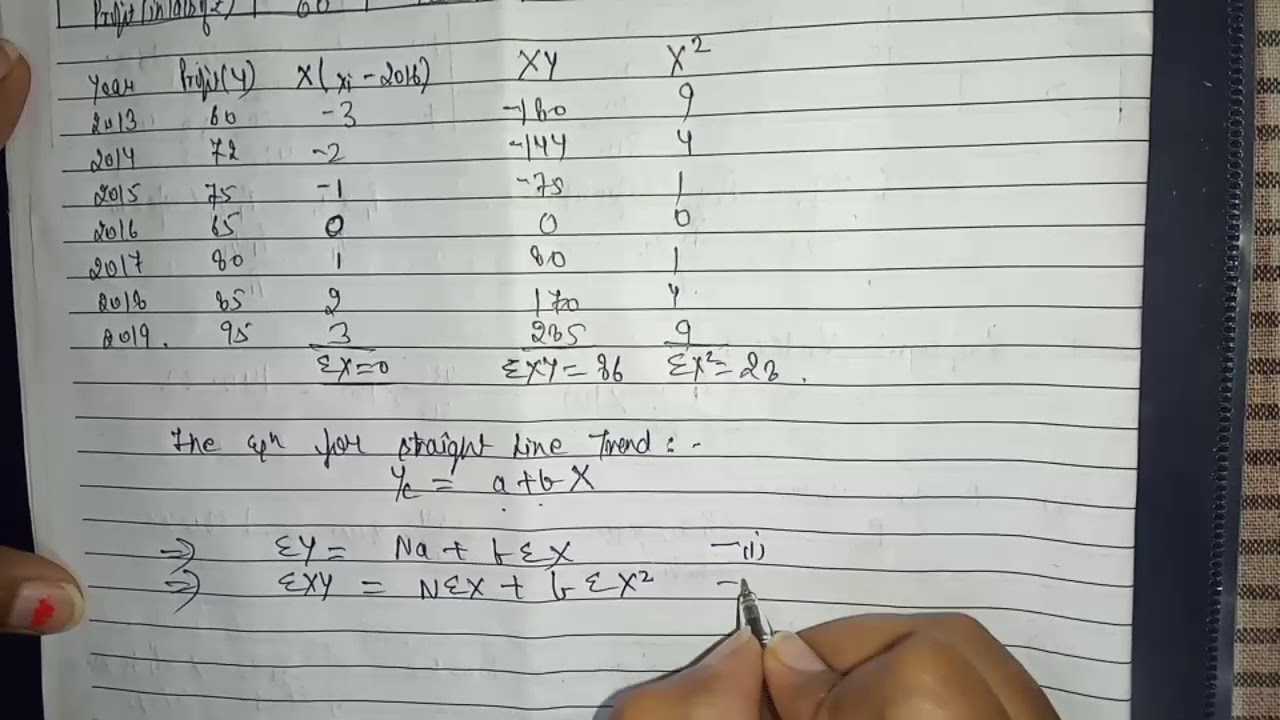 Profit (in lakhs of ₹) 60
Year Profit(Y) X(xi - 2016) XY X²
2013 60 -3 -180 9
2014 72 -2 -144 4
2015 75 -1 -75 1
2016 65 0 0 0
2017 80 1 80 1
2018 85 2 170 4
2019. 95 3 285 9
ΣX=0 ΣXY= 86 ΣX²= 28.
The eqn for straight Line Trend :-
Yc = a+bX
⇒ ΣY = Na + bΣX -(i)
⇒ ΣXY = NΣX + bΣX² -